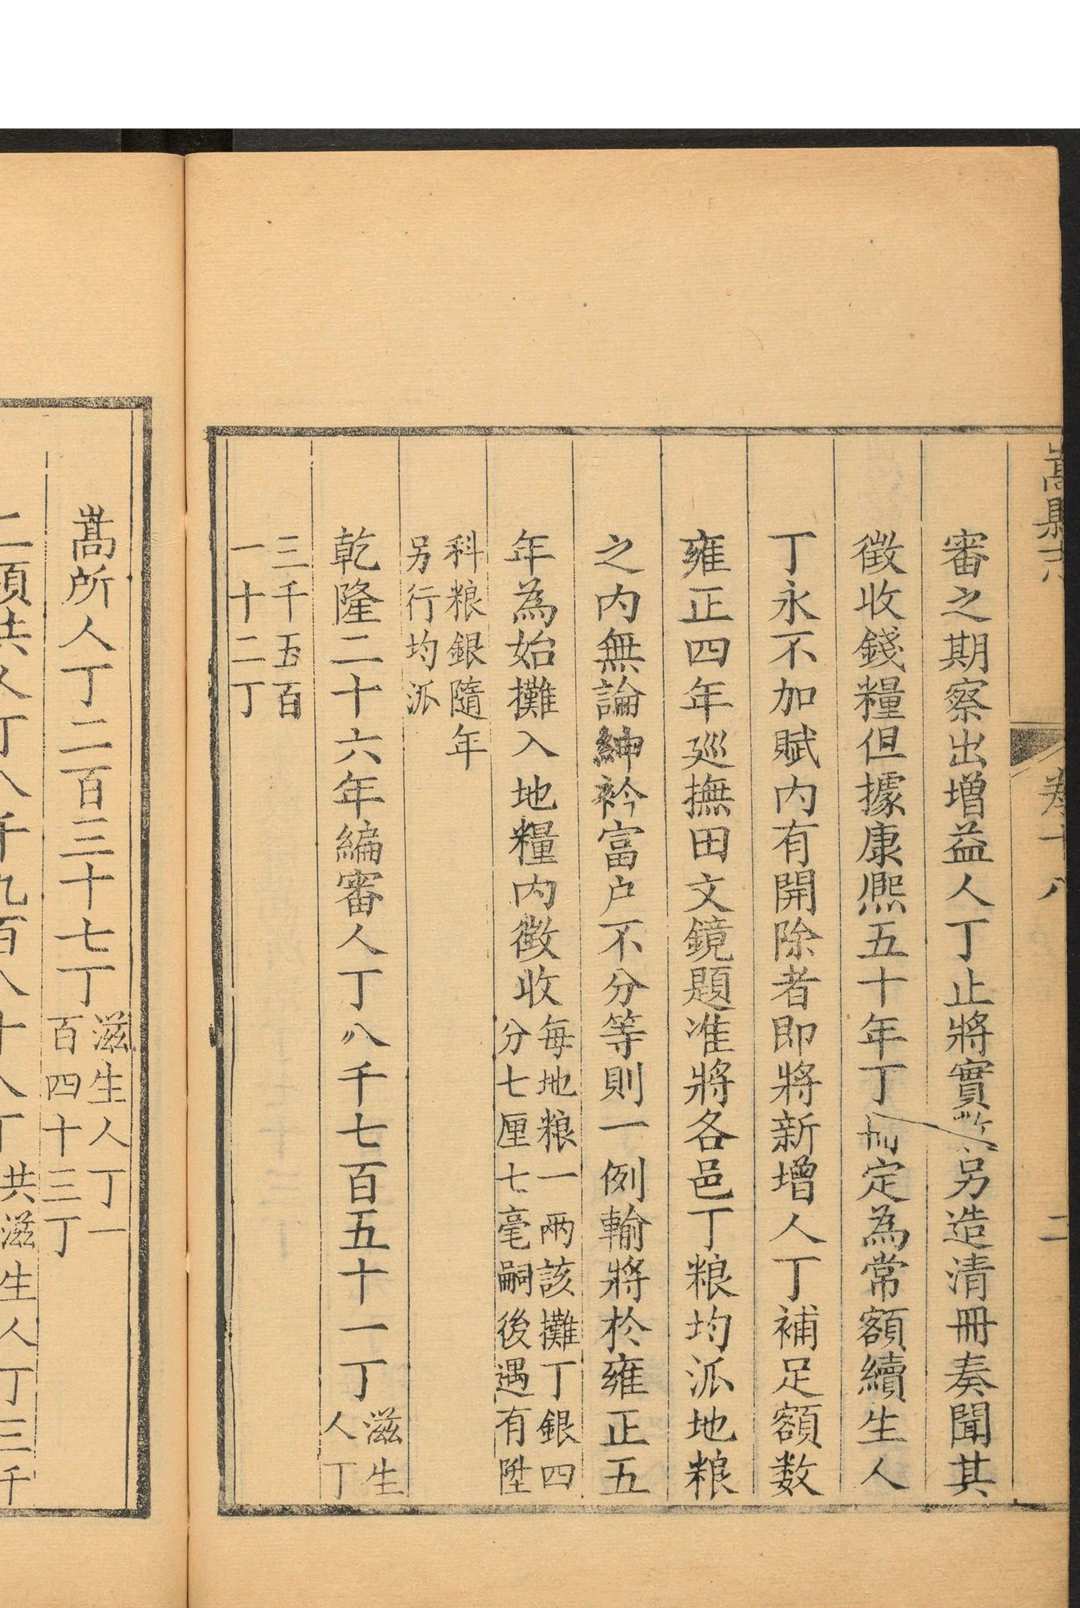 嵩縣志
卷十八
二
審之期察出增益人丁止將實數另造清冊奏聞其
徵收錢糧但據康熙五十年丁冊定為常額續生人
丁永不加賦內有開除者即將新增人丁補足額數
雍正四年巡撫田文鏡題准將各邑丁粮均派地粮
之内無論紳衿富户不分等則一例輸將於雍正五
年為始攤入地糧内徵收
每地粮一兩該攤丁銀四
分七厘七毫嗣後遇有陞
科粮銀隨年
另行均派
乾隆二十六年編審人丁八千七百五十一丁
滋生
人丁
三千五百
一十二丁
嵩所人丁二百三十七丁
滋生人丁一
百四十三丁
二項共人丁八千九百八十八丁
共滋生人丁三千